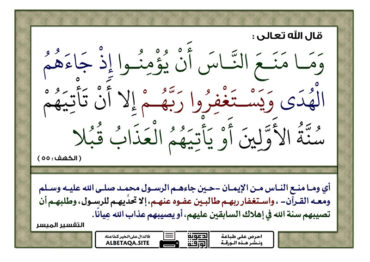 قال الله تعالى :
وَمَا مَنَعَ النَّاسَ أَنْ يُؤْمِنُوا إِذْ جَاءَهُمُ
الْهُدَى وَيَسْتَغْفِرُوا رَبَّهُمْ إِلا أَنْ تَأْتِيَهُمْ
سُنَّةُ الأَوَّلِينَ أَوْ يَأْتِيَهُمُ الْعَذَابُ قُبُلا
( الكهف : ٥٥ )
أي وما منع الناس من الإيمان -حين جاءهم الرسول محمد صلى الله عليه وسلم
ومعه القرآن- ، واستغفار ربهم طالبين عفوه عنهم، إلا تحدِّيهم للرسول، وطلبهم أن
تصيبهم سنة الله في إهلاك السابقين عليهم، أو يصيبهم عذاب الله عِيانًا.
التفسير الميسر
احرص على طباعة
ونشر هذه الورقة
فالدال على الخير كفاعله
ALBETAQA.SITE